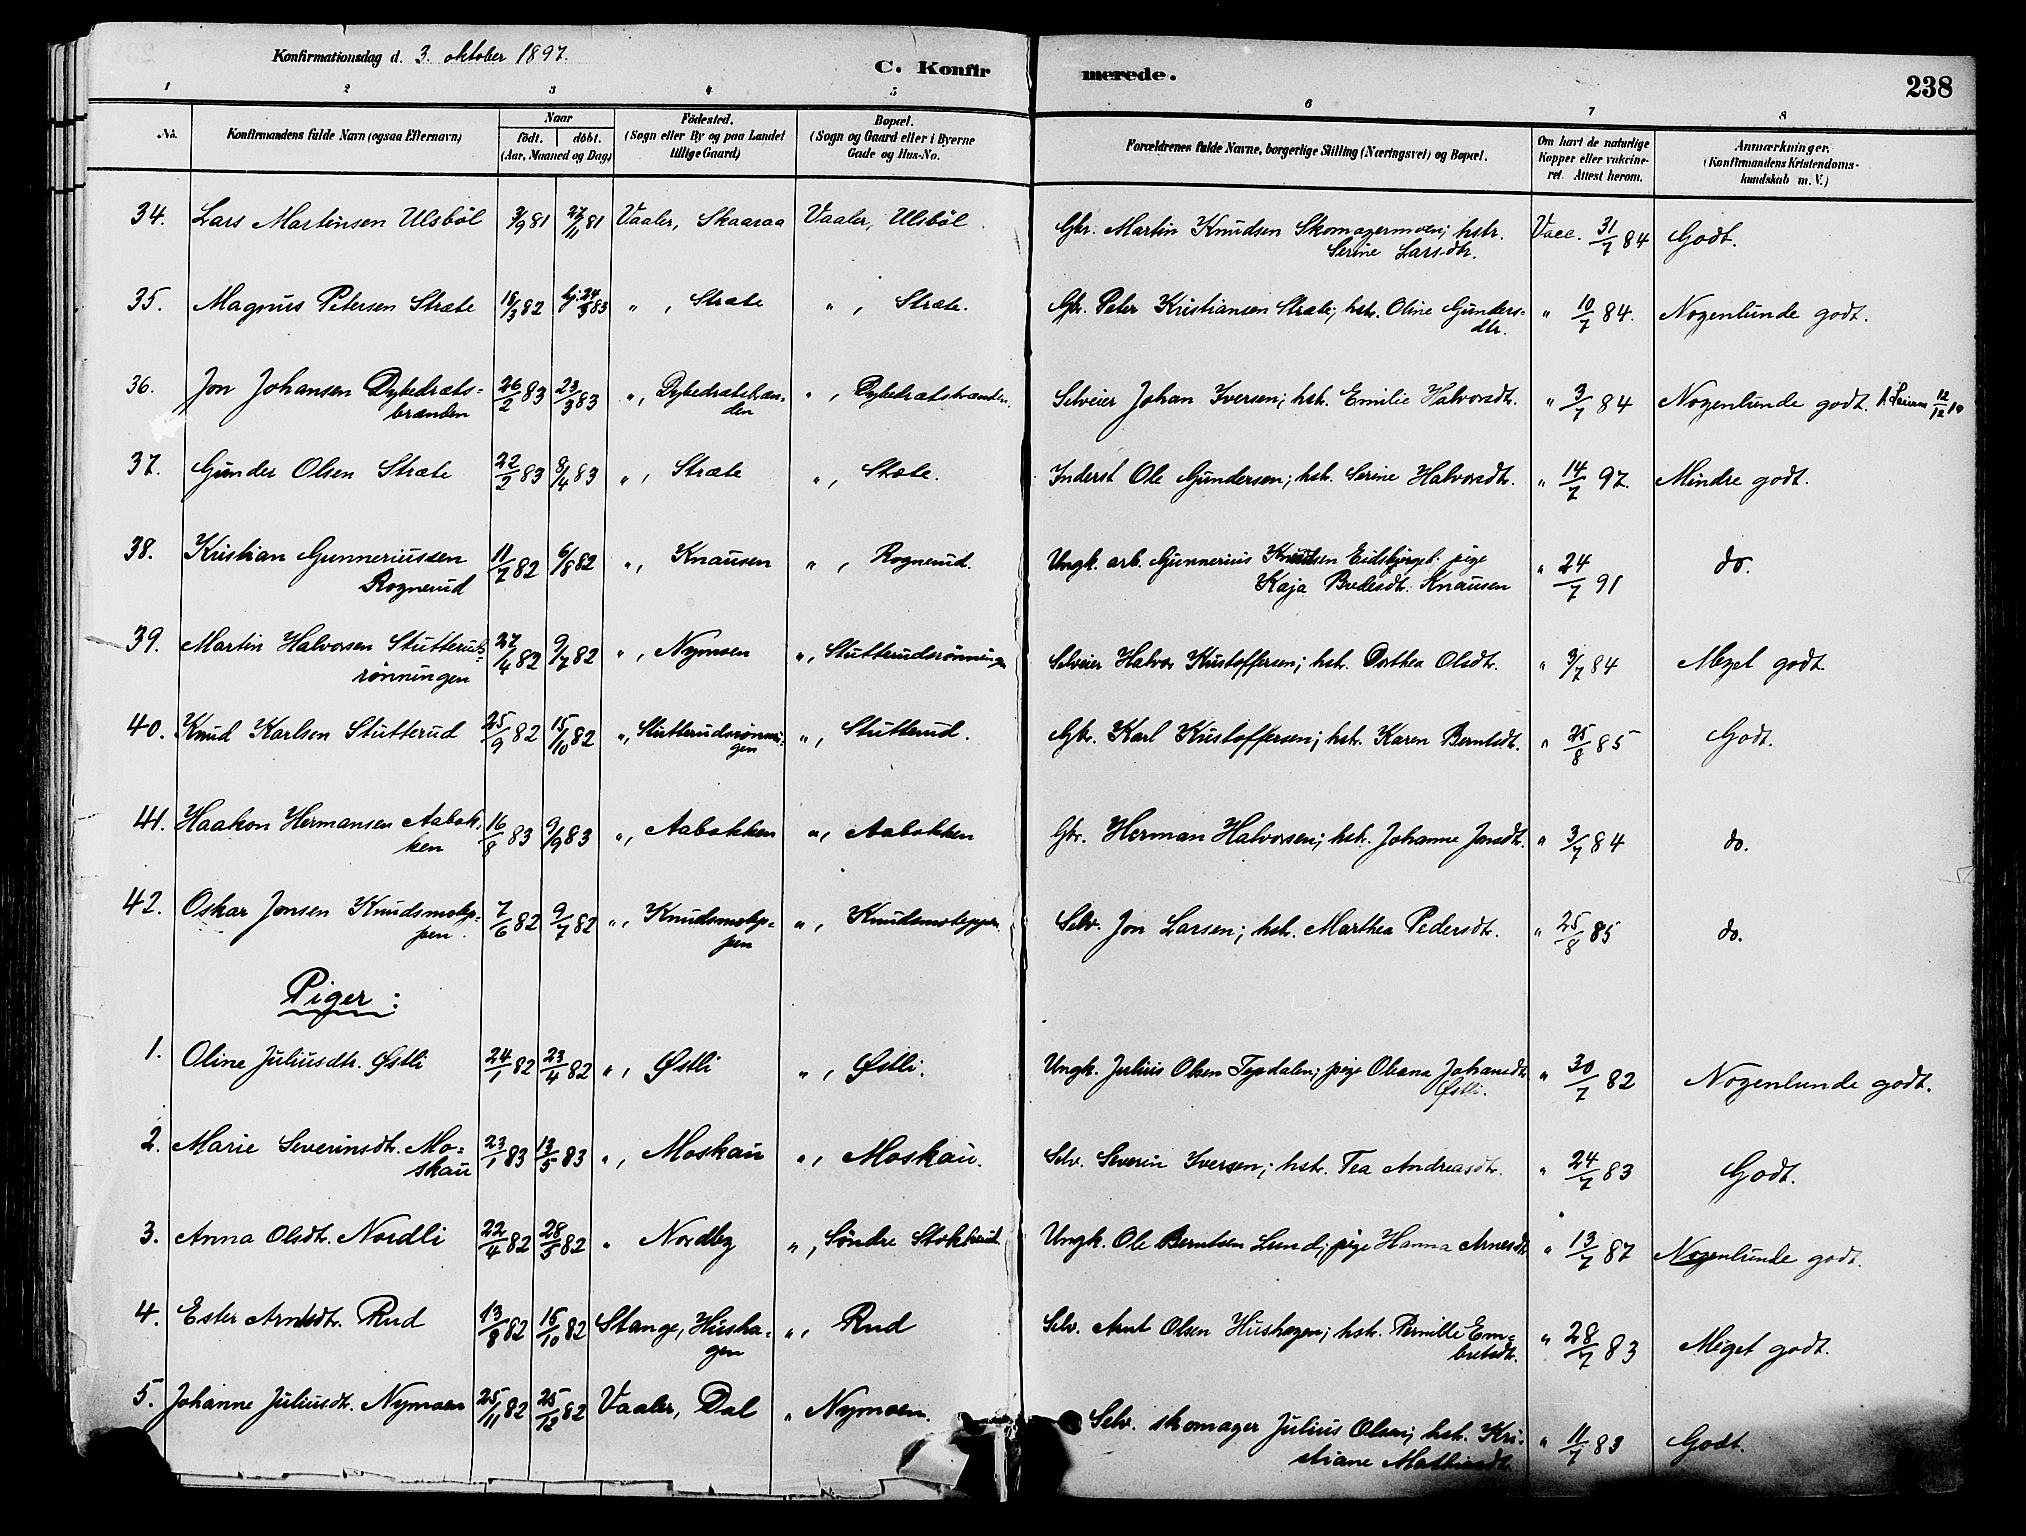 Konfirmationsdag d. 3. oktober 1897.
C. Konfirmerede.
238
1 2 3 4 5 6 7 8
No. Konfirmandens fulde Navn (ogsaa Efternavn) Naar født. døbt. (Aar, Maaned og Dag) Fødested. (Sogn eller By og paa Landet tillige Gaard) Bopæl. (Sogn og Gaard eller i Byerne Gade og Hus-No. Forældrenes fulde Navne, borgerlige Stilling (Næringsvei) og Bopæl. Om havt de naturlige Kopper eller vakcineret. Attest herom. Anmærkninger. (Konfirmandens Kristendomskundskab m. V.)
34. Lars Martinsen Ulsböl 3/9 81 27/11 81 Vaaler, Skaaraa Vaaler, Ulsböl Gbr. Martin Knudsen Skomagermoen; hstr. Serine Larsdtr. Vacc. 31/7 84 Godt.
35. Magnus Petersen Stræte 18/3 82 24/3 83 ", Stræte ", Stræte. Gbr. Peter Kristiansen Stræte; hstr. Oline Gundersdtr. " 10/7 84. Nogenlunde godt.
36. Jon Johansen Dybedratsbrænden 26/2 83 23/3 83 ", Dybedratsbrænden ", Dybedratsbrænden. Selveier Johan Iversen; hstr. Emilie Halvorsdtr. " 3/7 84 Nogenlunde godt. 12/12
37. Gunder Olsen Stræte 22/2 83 8/4 83 ", Stræte ", Stæte. Inderst Ole Gundersen; hstr. Serine Halvorsdtr. " 14/7 97. Mindre godt.
38. Kristian Gunneriussen Rognerud 11/7 82 6/8 82 ", Knausen ", Rognerud. Ungk. arb. Gunnerius Knudsen Eidsbjerget. pige Kaja Bredesdtr. Knausen " 24/7 91 do.
39. Martin Halvorsen Stutterudrönningen 27/4 82 9/7 82 ", Nymoen ", Stutterudrönningen Selveier Halvor Kristoffersen; hstr. Dorthea Olsdtr. " 3/7 84 Meget godt.
40. Knud Karlsen Stutterud 25/9 82 15/10 82 ", Stutterudrönningen ", Stutterud. Gbr. Karl Kristoffersen; hstr. Karen Berntsdtr. " 25/8 85 Godt.
41. Haakon Hermansen Aabakken 16/8 83 9/9 83 ", Aabakken ", Aabakken Gbr. Herman Halvorsen; hstr. Johanne Jonsdtr. " 3/7 84 do.
42. Oskar Jonsen Knudsmoteppen 7/6 82 9/7 82 ", Knudsmoteppen ", Knudsmoteppen. Selv. Jon Larsen; hstr. Marthea Pedersdtr. " 25/8 85 do.
Piger:
1. Oline Juliusdtr. Østli 24/1 82 23/4 82 ", Østli ", Østli. Ungk. Julius Olsen ; pige Oleana Johansdtr. Østli. " 30/7 82 Nogenlunde godt.
2. Marie Severinsdtr. Moskau 23/1 83 13/5 83 ", Moskau ", Moskau. Selv. Severin Iversen; hstr. Tea Andreasdtr. " 24/7 83 Godt.
3. Anna Olsdtr. Nordli 22/4 82 28/5 82 " Nordby ", Søndre Stokkerud Ungk. Ole Berntsen Lund; pige Hanna Arnesdtr. " 13/7 87 Nogenlunde godt.
4. Ester Arntsdtr. Rud 13/8 82 15/10 82 Stange, Hushagen ", Rud Selv. Arnt Olsen Hushagen; hstr. Pernille Embretsdtr. " 28/7 83 Meget godt.
5. Johanne Juliusdtr. Nymoen 25/11 82 25/12 82 Vaaler, Dal " Nymoen. Selv. skomager Julius Olsen; hstr. Kristiane Mathiasdtr. " 11/7 83 Godt.